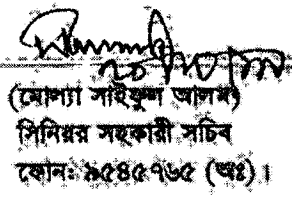 (মোল্যা সাইফুল আলম)
সিনিয়র সহকারী সচিব
ফোন: ৯৫৪৫৭৬৫ (অঃ)।